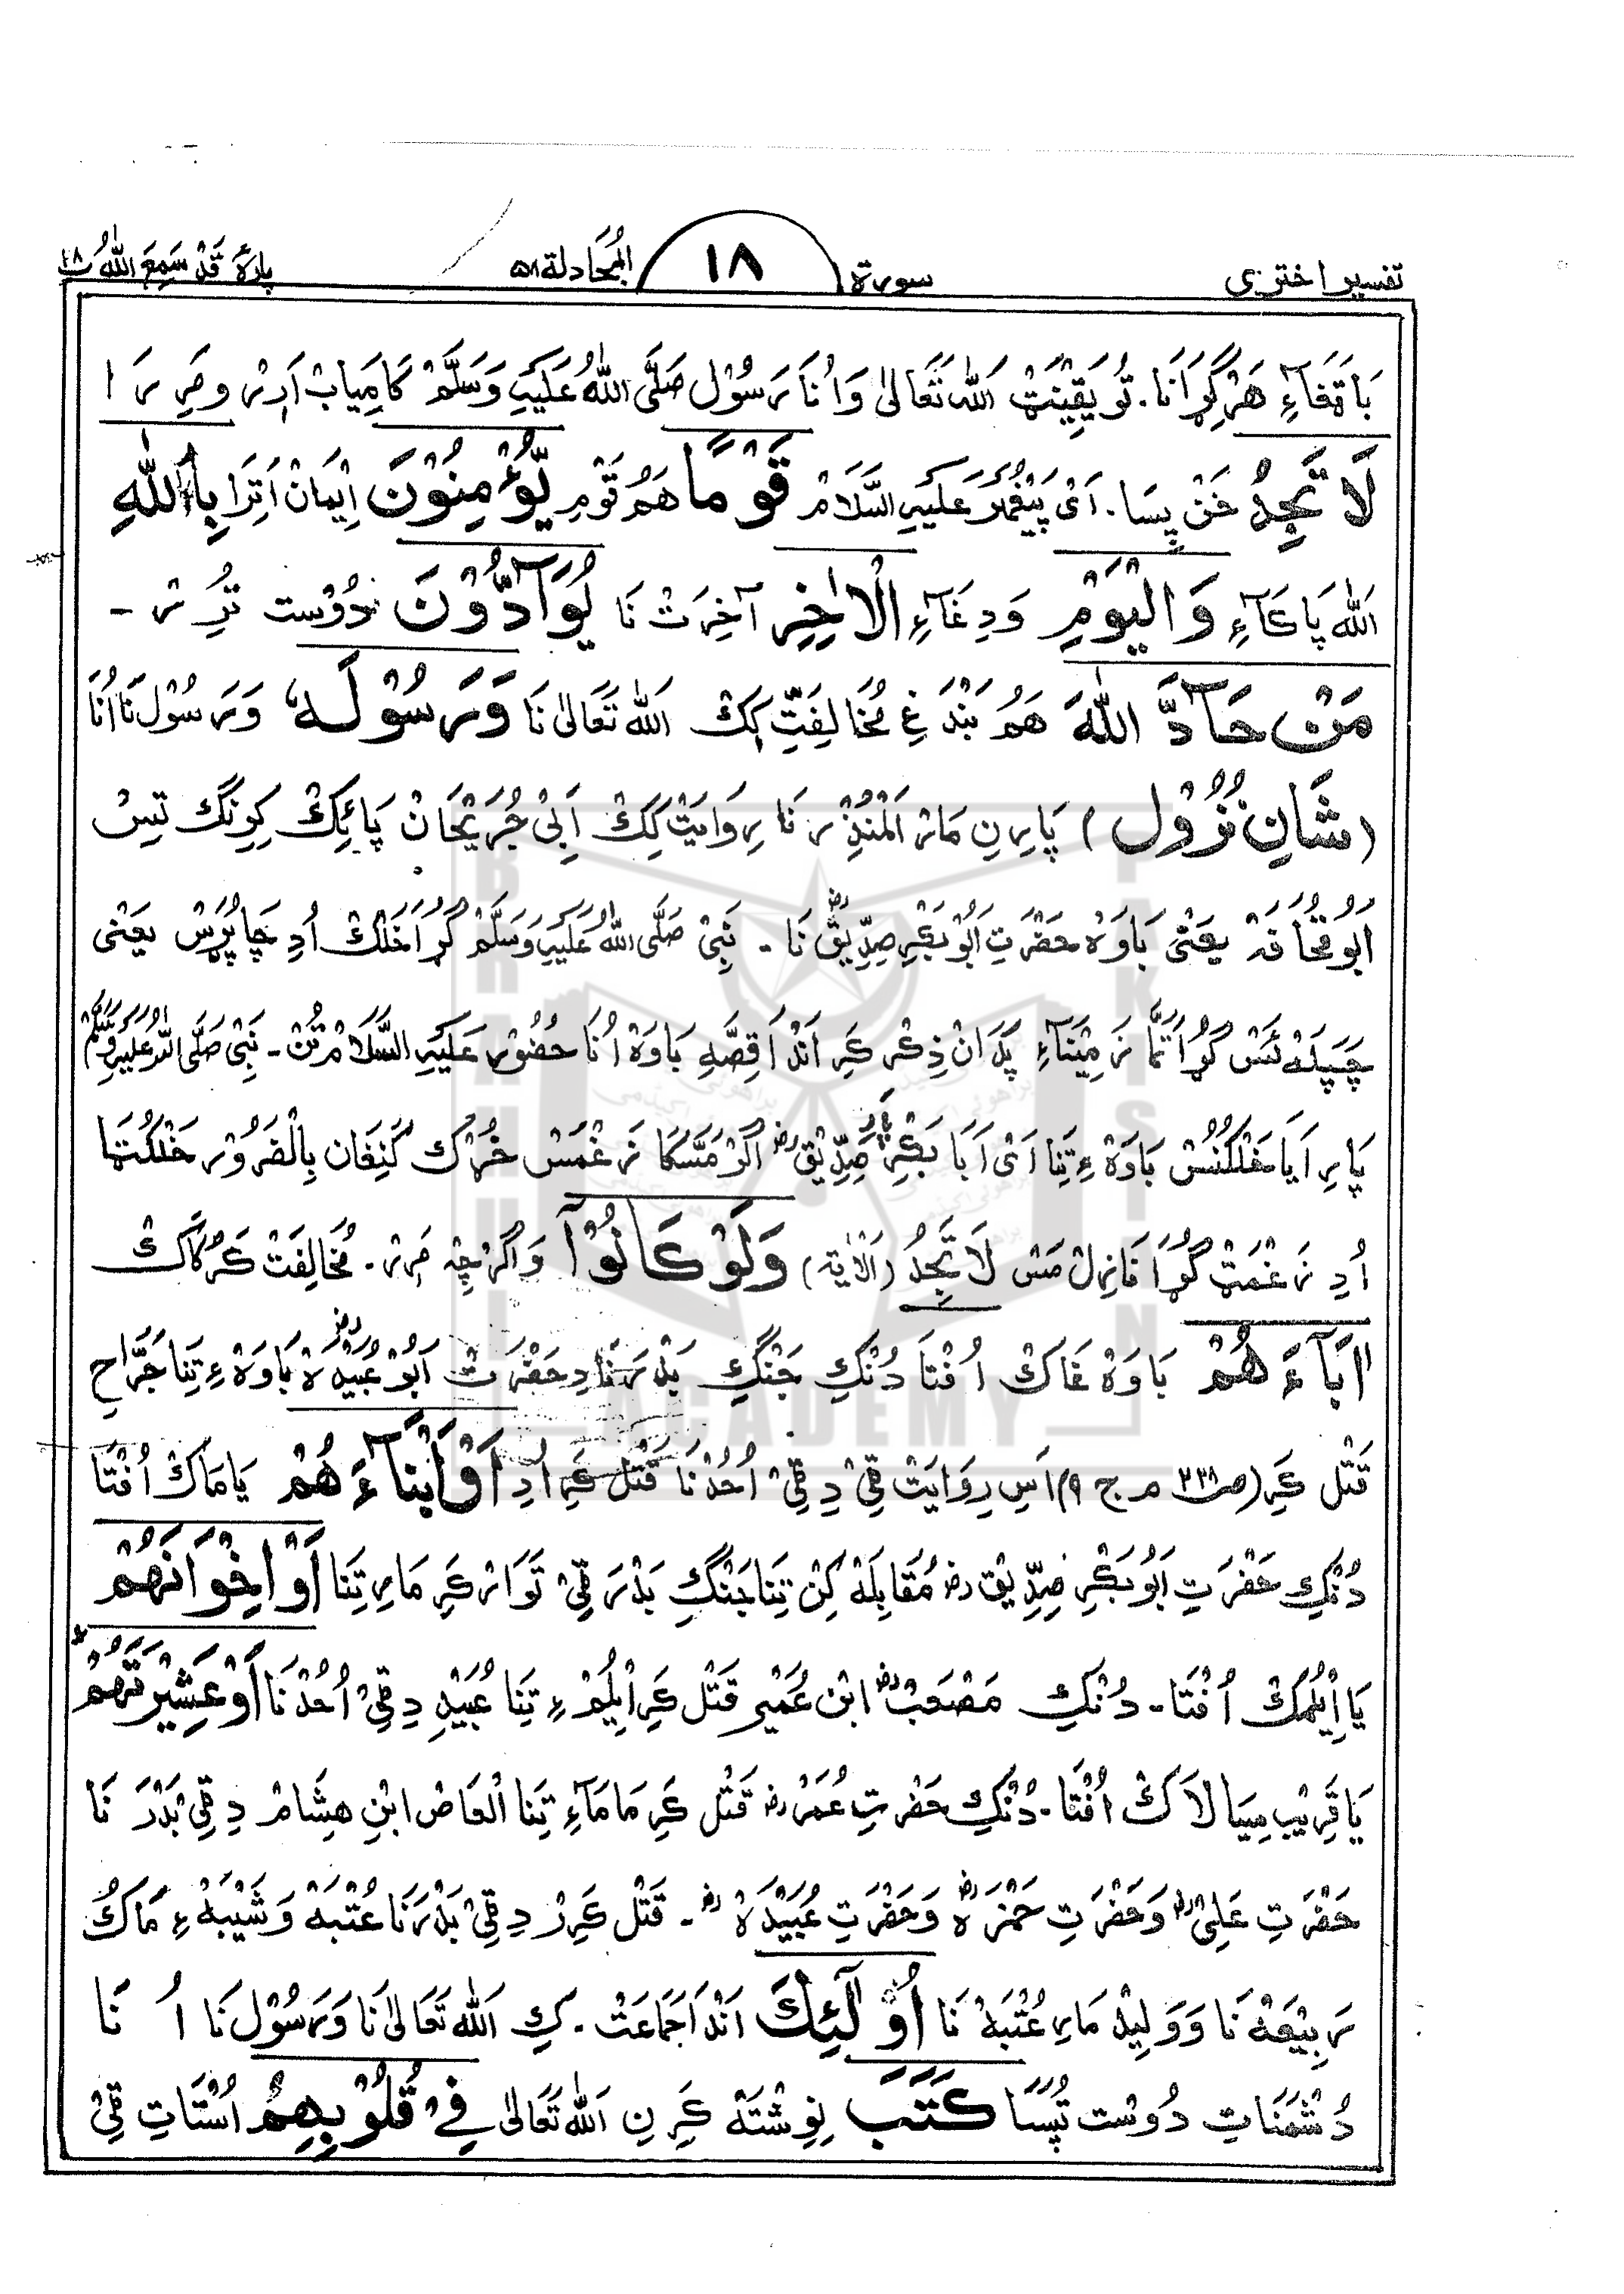 تفسیر اختری سورة ١٨ المُجَادلة ۵۸ پارهٔ قَدْ سَمِعَ اللّٰهُ ۲۸
بَاتَفَاءِ هَرْ گِڑَانَا. تُو یَقِیْنَتْ اَللّٰه تَعَالیٰ وَ اُنَا رَسُوْل صَلَّی اللّٰهُ عَلَیْهِ وَسَلَّمْ کَامِیَابْ اَرِیْر
لَا تَجِدُ خَنْ پِسَا. اَیْ پَیْغَمْبَرْ عَلَیْهِ السَّلَامْ قَوْمًا هَمُ قَوْمِ یُّؤْمِنُوْنَ اِیْمَانْ اَتِرَا بِاللّٰهِ
اَللّٰه پَاکَاءِ وَالْیَوْمِ وَدِغَاءِ الْاٰخِرِ آخِرَتْ نَا یُوَآدُّوْنَ دُوْست تِرُر -
مَنْ حَآدَّ اللّٰهَ هَمُ بَنْدَغِ مُخَالِفَتِ کِکْ اَللّٰه تَعَالیٰ نَا وَرَسُوْلَهٗ وَ رَسُوْل نَا اُنَا
(شَانِ نُزُوْل) پَارِنِ مَارْ اَلْمُنْذِرْ نَا رِوَایَتْ کِکْ اَبِیْ جُرَیْحَانْ پَائِکْ کِرِنِگْ تِسْ
اَبُوْ قُحَافَهْ یَعْنِیْ بَاوَهْ حَضْرَتِ اَبُوْ بَکْرِ صِدِّیْقْ رض نَا - نَبِیْ صَلَّی اللّٰهُ عَلَیْهِ وَسَلَّمْ کُڑَا خَلْکْ اُدِ چَاپُرْسْ یَعْنِی
چَپِلَهْ ئَسْ کُڑَا تَمَّا زَمِیْنَاءِ پَدَانْ ذِکْر کَرِ اَنْدَا قِصَّهِ بَاوَهْ اُنَا حُضُوْر عَلَیْهِ السَّلَامْ تُنْ - نَبِیْ صَلَّی اللّٰهُ عَلَیْهِ وَسَلَّمْ
پَارِ اَیَا خَلْکُنُسْ بَاوَهْ ءِ تِنَا اَیْ اَبَا بَکْرِ پَارِ صِدِّیْق رض اَگَرْ مَسَّکَا زَغْمَسْ خُڑْکْ کَنِغَان بِالْضَرُوْر خَلْکُتْهَا
اُدِ زَغْمَتْ کُڑَا نَازِلْ مَسْ لَا تَجِدُ (اَلْاٰیَة) وَلَوْ کَانُوْآ وَ اَگَرْچِهْ مَرْر - مُخَالِفَتْ کَرُکَاکْ
اٰبَآءَهُمْ بَاوَهْ غَاکْ اُفْتَا دُنْکِ جَنْگِ بَدْرَنَا دِ حَضْرَتْ اَبُوْ عُبَیْدَهْ رض بَاوَهْ ءِ تِنَا جَرَّاح
قَتْل کَرِ (ص ۳۳۸ م ج ۹) اَسِ رِوَایَتْ ٹِیْ دِ ٹِیْ اُحُدْنَا قَتْل کَرِ اُدِ اَوْ اَبْنَآءَهُمْ یَا مَاکْ اُفْتَا
دُنْکِ حَضْرَتِ اَبُوْ بَکْرِ صِدِّیْق رض مُقَابِلَهْ کِنْ تِنَا جَنْگِ بَدْرَ ٹِیْ تَوَارْ کَرِ مَارِ تِنَا اَوْ اِخْوَانَهُمْ
یَا اِیْلُمْکْ اُفْتَا - دُنْکِ مَصْعَبْ رض ابْن عُمَیْر قَتْل کَرِ اِیْلُمْ ءِ تِنَا عُبَیْدِ دِ ٹِیْ اُحُدْ نَا اَوْ عَشِیْرَتَهُمْ
یَا قَرِیْب سِیَالَاکْ اُفْتَا - دُنْکِ حَضْرَتِ عُمَرْ رض قَتْل کَرِ مَامَاءِ تِنَا الْعَاصْ ابْنِ هِشَامْ دِ ٹِیْ بَدْرَ نَا
حَضْرَتِ عَلِیْ رض وَ حَضْرَتِ حَمْزَهْ رض وَ حَضْرَتِ عُبَیْدَهْ رض - قَتْل کَرِرْ دِ ٹِیْ بَدْرَنَا عُتْبَهْ وَ شَیْبَهْ ءِ مَاکْ
رَبِیْعَهْ نَا وَ وَلِیْدْ مَارِ عُتْبَهْ نَا اُوْلٰٓئِكَ اَنْدَا جَمَاعَتْ - کِ اَللّٰه تَعَالیٰ نَا وَ رَسُوْل نَا اُ نَا
دُشْمَنَاتِ دُوْست تُپَسَا کَتَبَ نِوِشْتَهْ کَرِنِ اَللّٰه تَعَالیٰ فِیْ قُلُوْبِهِمُ اُسْتَاتِ ٹِیْ
BRAHUI ACADEMY PAKISTAN